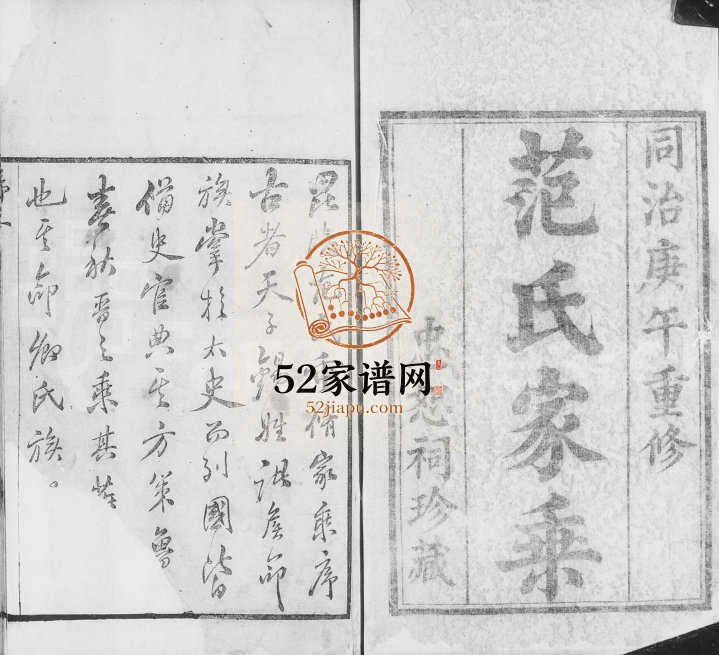 同治庚午重修
范氏家乘
祠珍藏
脩家乘序
古者天子錫姓諸侯命
族掌於太史而列國皆
備史官典其方策魯
春秋晉之乘其
也其命鄉氏族。
52家谱网
52jiapu.com